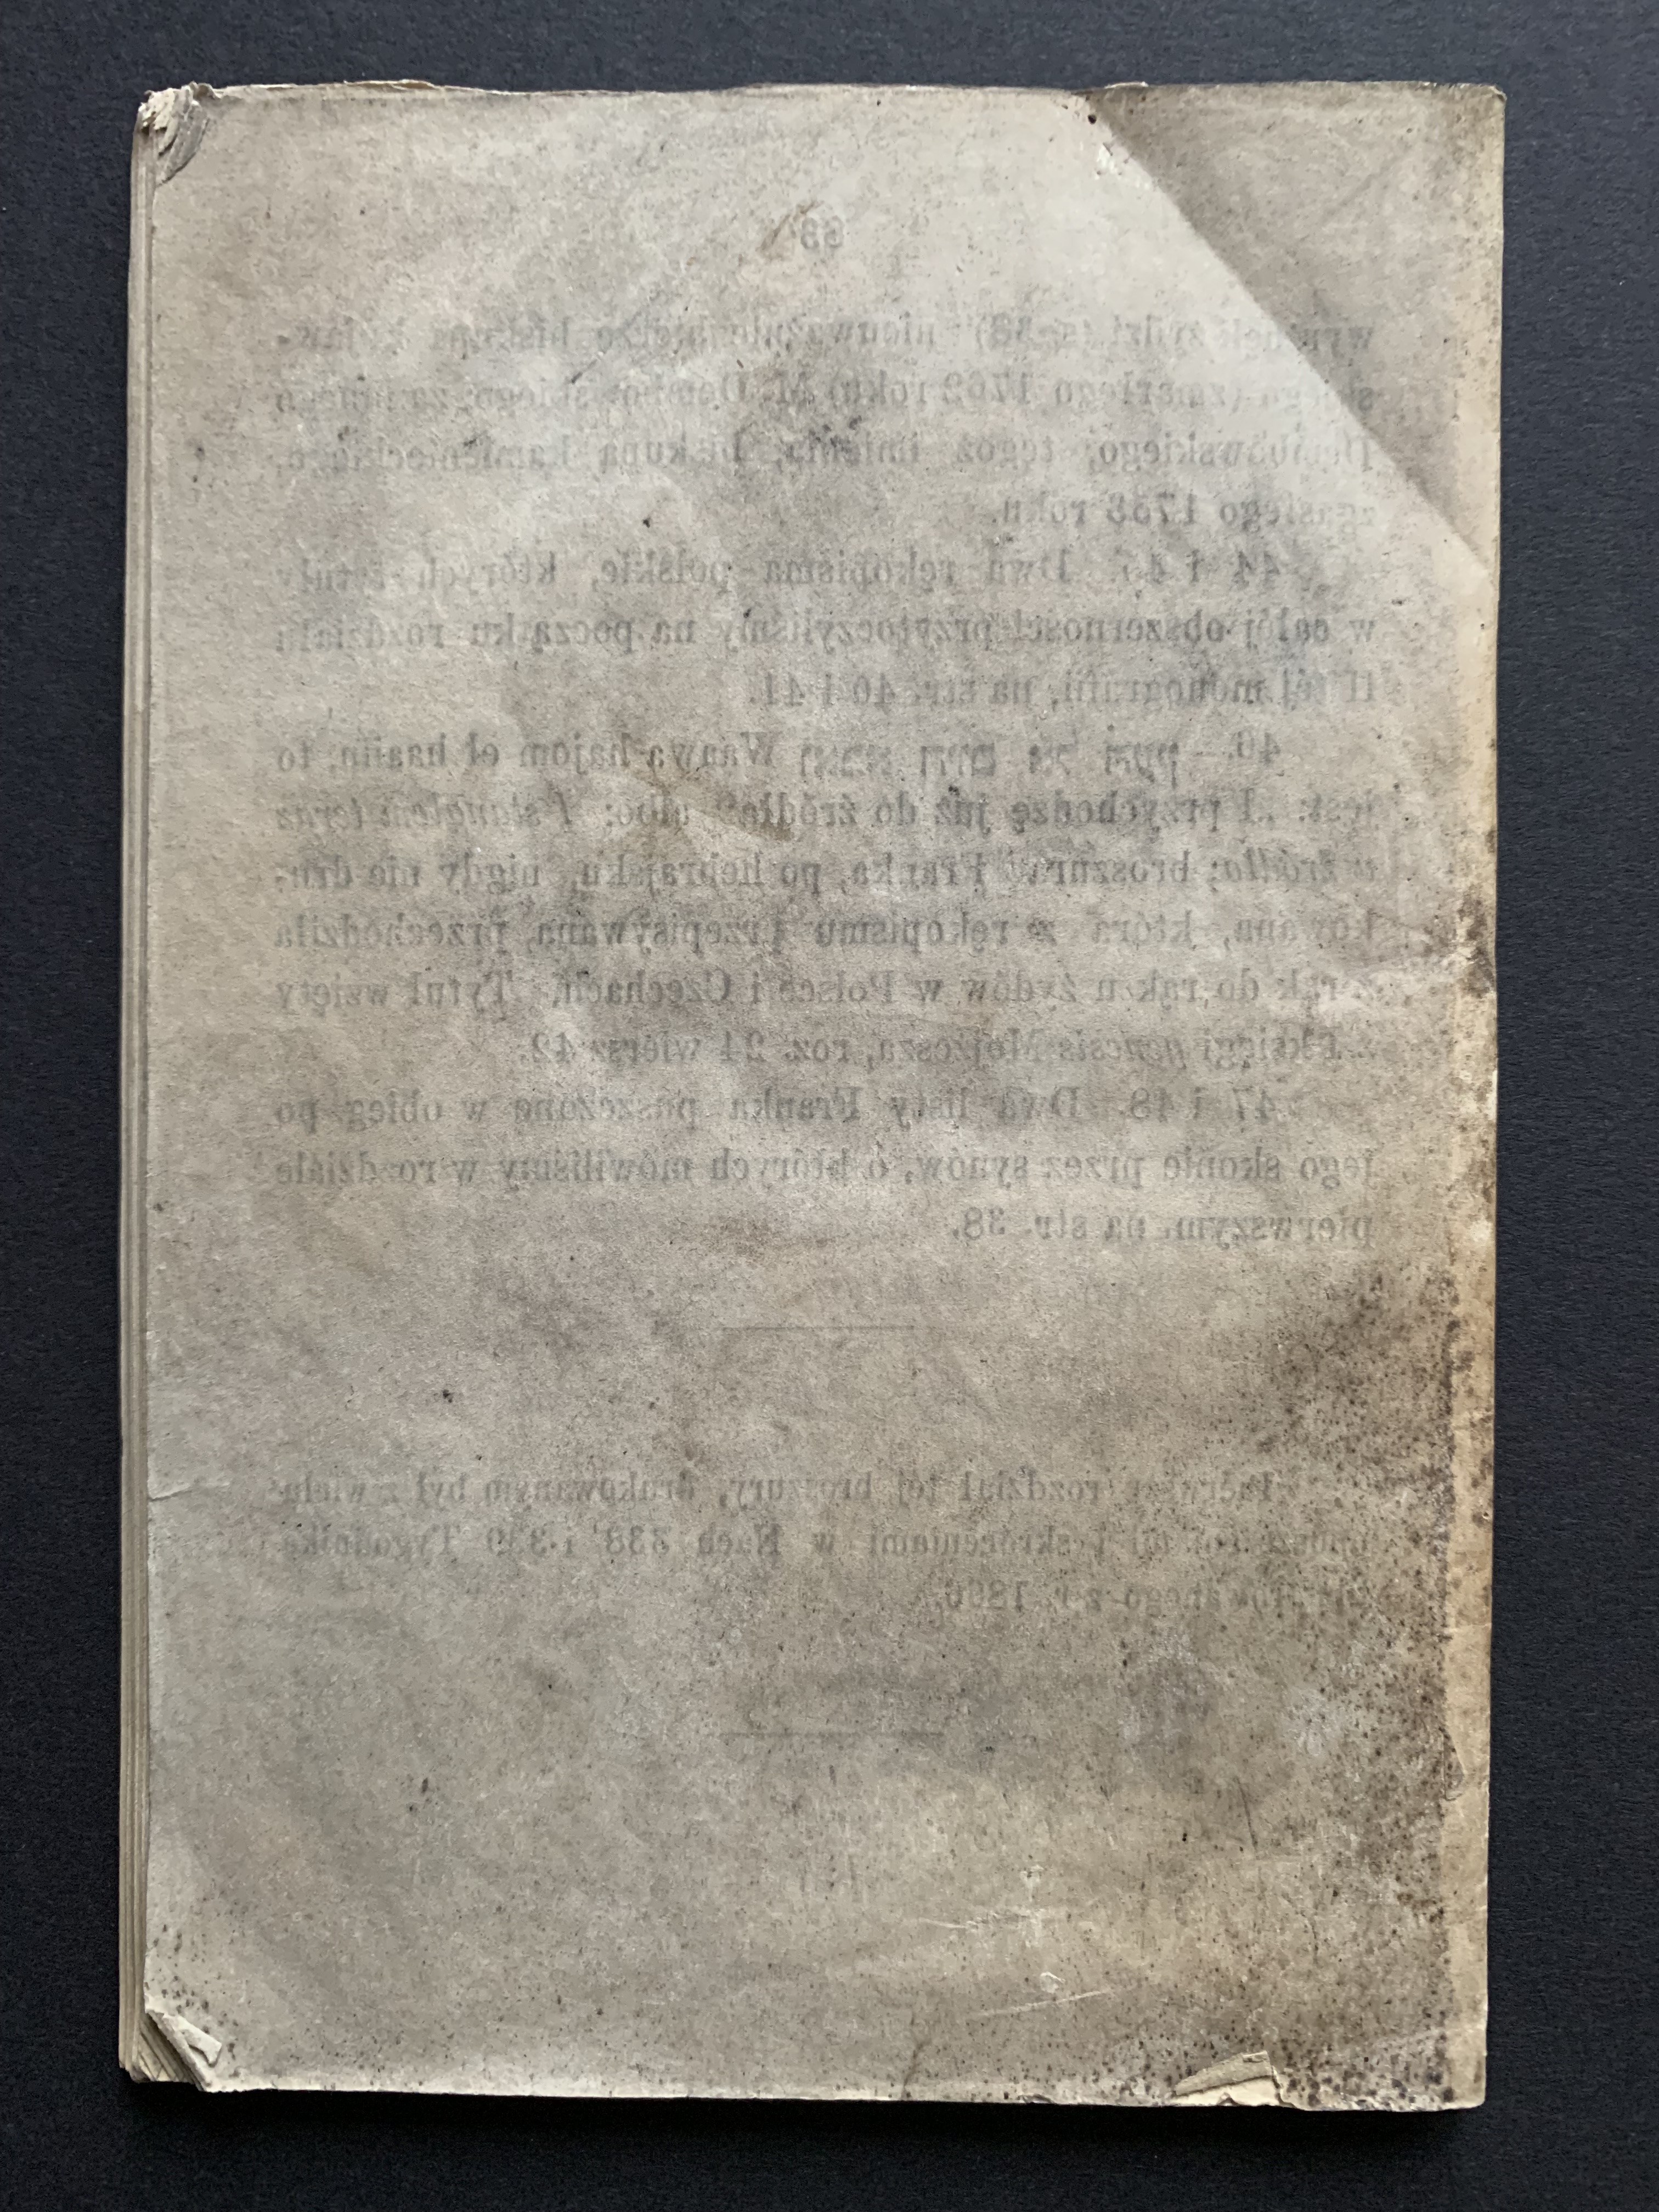 nieuważnie bierze biskupa
(zmarłego 1762 roku) M. za innego
tegoż imienia, biskupa kamienieckiego,
roku.
44 i 45. Dwa rękopisma polskie, których tytuły
w całéj obszerności przytoczyliśmy na początku rozdziału
II téj monografii, na str. 40 i 41.
46. Waawa-hajom el haajin, to
jest: „I przychodzę już do źródła” albo: I stanąłem teraz
u źródła; Franka, po hebrajsku, nigdy nie dru-
kowana, która z rękopismu przepisywana, przechodziła
z rąk do rąk u żydów w Polsce i Czechach. Tytuł wzięty
z księgi genesis Mojżesza, roz. 24 wiersz 42.
47 i 48. Dwa listy Franka puszczone w obieg po
jego skonie przez synów, o których mówiliśmy w rozdziale
pierwszym, na str. 38.
rozdział téj broszury, drukowanym był z wielu
i skróceniami w Nach 338 i 339 Tygodnika
z r.